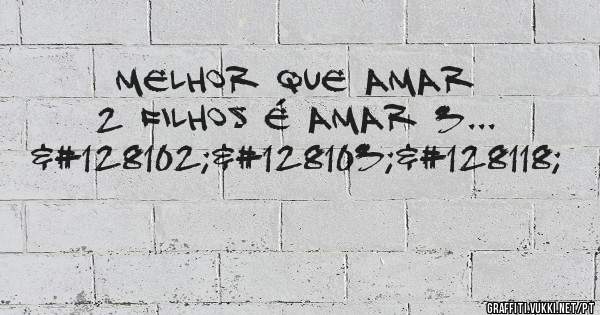 MELHOR QUE AMAR
2 FILHOS É AMAR 3...
&#128102;&#128103;&#128118;
GRAFFITI.VUKKI.NET/PT